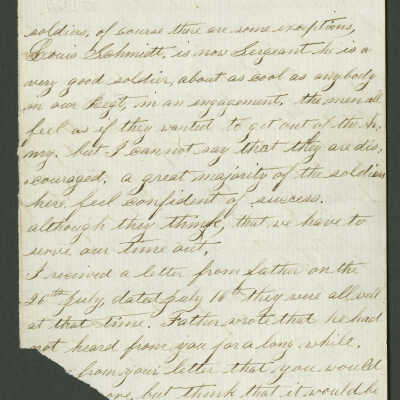 soldiers, of course there are some exceptions,
Louis Schmidt, is now Sergeant he is a
very good soldier, about as cool as anybody
in our Regt, in an engagement, the men all
feel as if they wanted to get out of the Ar,
my. but I can not say that they are dis,
couraged, a great majority of the soldiers
here, feel confident of success.
although they think, that we have to
serve our time out,
I received a letter from father on the
26th July, dated July 16th they were all well
at that time. Father wrote that he had
not heard from you for a long while.
from your letter that you would
but think that it would be